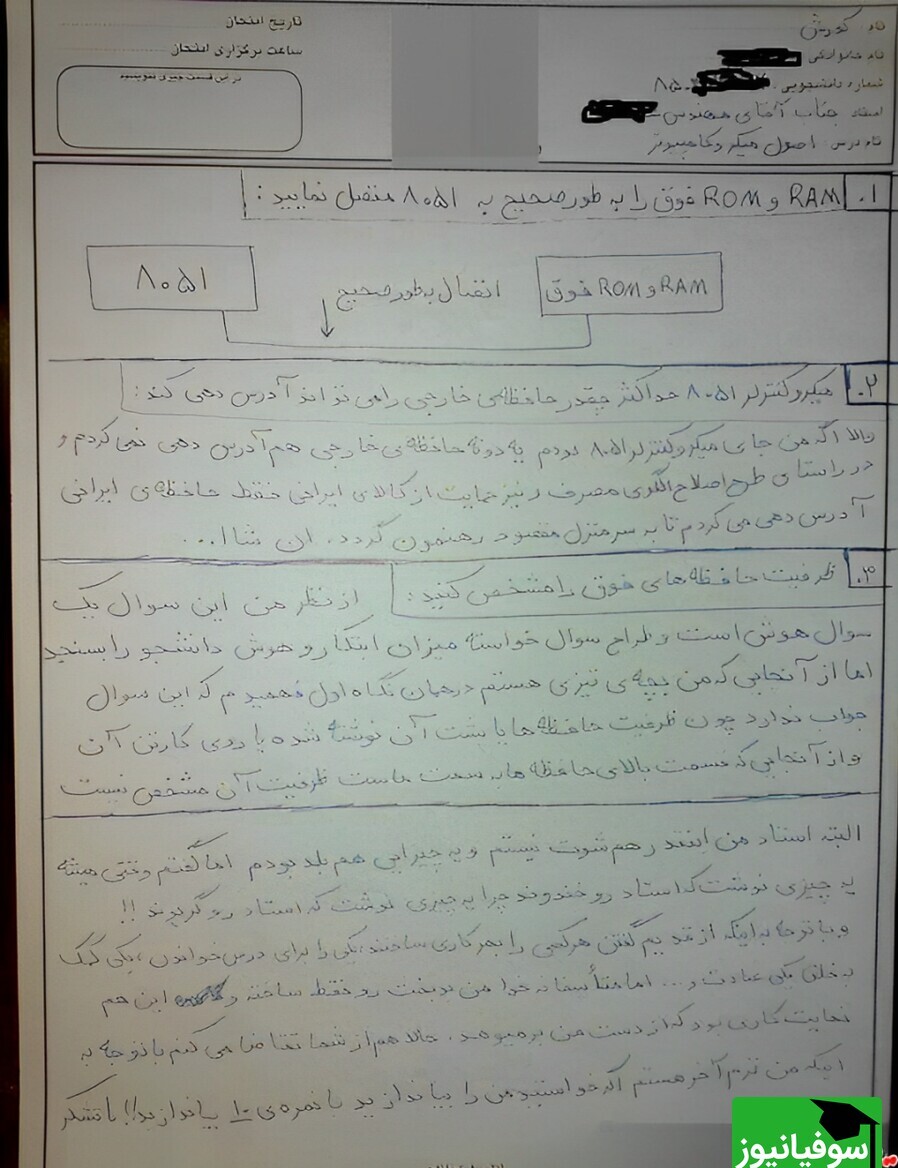 تاریخ امتحان
ساعت برگزاری امتحان
در این قسمت چیزی ننویسید
نام: کورش
نام خانوادگی
شماره دانشجویی: ۸۵۰
استاد: جناب آقای مهندس
نام درس: اصول میکروکامپیوتر
۱. RAM و ROM فوق را به طور صحیح به ۸۰۵۱ متصل نمایید:
RAM و ROM فوق
اتصال به طور صحیح
۸۰۵۱
۲. میکروکنترلر ۸۰۵۱ حداکثر چقدر حافظه‌ی خارجی را می تواند آدرس دهی کند:
والا اگه من جای میکروکنترلر ۸۰۵۱ بودم یه دونه حافظه‌ی خارجی هم آدرس دهی نمی کردم و
در راستای طرح اصلاح الگوی مصرف و نیز حمایت از کالای ایرانی فقط حافظه‌ی ایرانی
آدرس دهی می کردم تا به سرمنزل مقصود رهنمون گردد. ان شاا...
۳. ظرفیت حافظه های فوق را مشخص کنید: از نظر من این سوال یک
سوال هوش است و طراح سوال خواسته میزان ابتکار و هوش دانشجو را بسنجید
اما از آنجایی که من بچه‌ی تیزی هستم در همان نگاه اول فهمیدم که این سوال
جواب ندارد چون ظرفیت حافظه ها یا پشت آن نوشته شده یا روی کارتن آن
و از آنجایی که قسمت بالای حافظه ها به سمت ماست ظرفیت آن مشخص نیست
البته استاد من اینقدر هم شوت نیستم و یه چیزایی هم بلد بودم اما گفتم وقتی میشه
یه چیزی نوشت که استاد رو خندوند چرا یه چیزی نوشت که استاد رو گریوند !!
و با توجه به اینکه از قدیم گفتن هر کسی را بهر کاری ساختند، یکی را برای درس خواندن، یکی کمک
به خلق یکی عبادت و... اما متأسفانه خدا من بدبخت رو فقط ساخته و این هم
نهایت کاری بود که از دست من برمیومد. حالا هم از شما تقاضا می کنم با توجه به
اینکه من ترم آخر هستم اگه خواستید من را بیاندازید با نمره‌ی ۱۰ بیاندازید!! با تشکر
سوفیانیوز